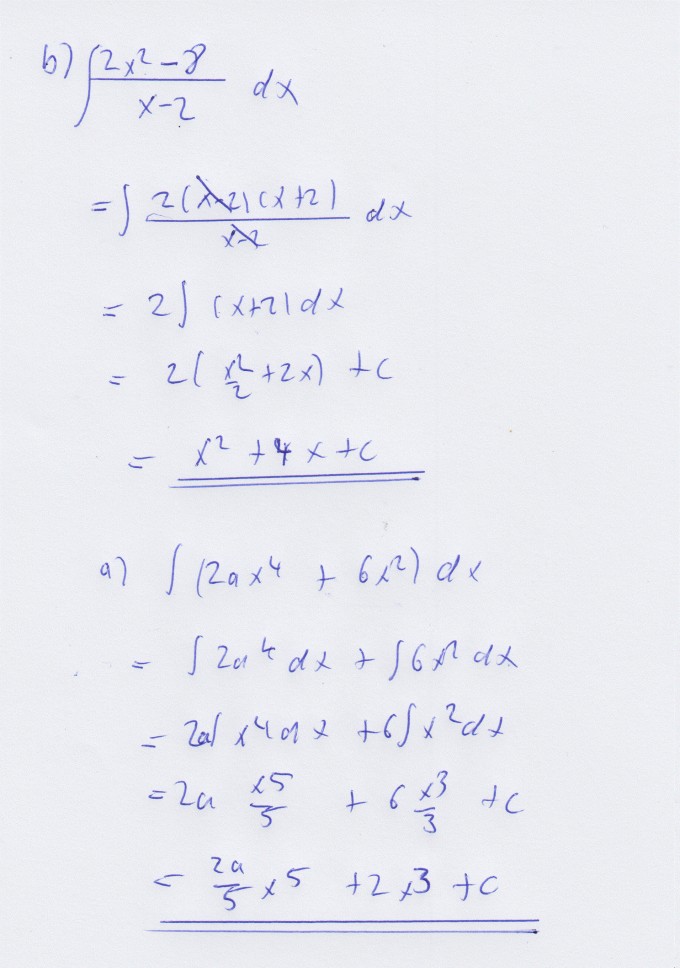 b) ∫ (2x² - 8)/(x - 2) dx
= ∫ 2(x-2)(x+2)/(x-2) dx
= 2∫ (x+2) dx
= 2(x²/2 + 2x) + c
= x² + 4x + c
a) ∫ (2ax⁴ + 6x²) dx
= ∫ 2a⁴ dx + ∫ 6x² dx
= 2a∫ x⁴ dx + 6∫ x² dx
= 2a x⁵/5 + 6 x³/3 + c
= 2a/5 x⁵ + 2x³ + c